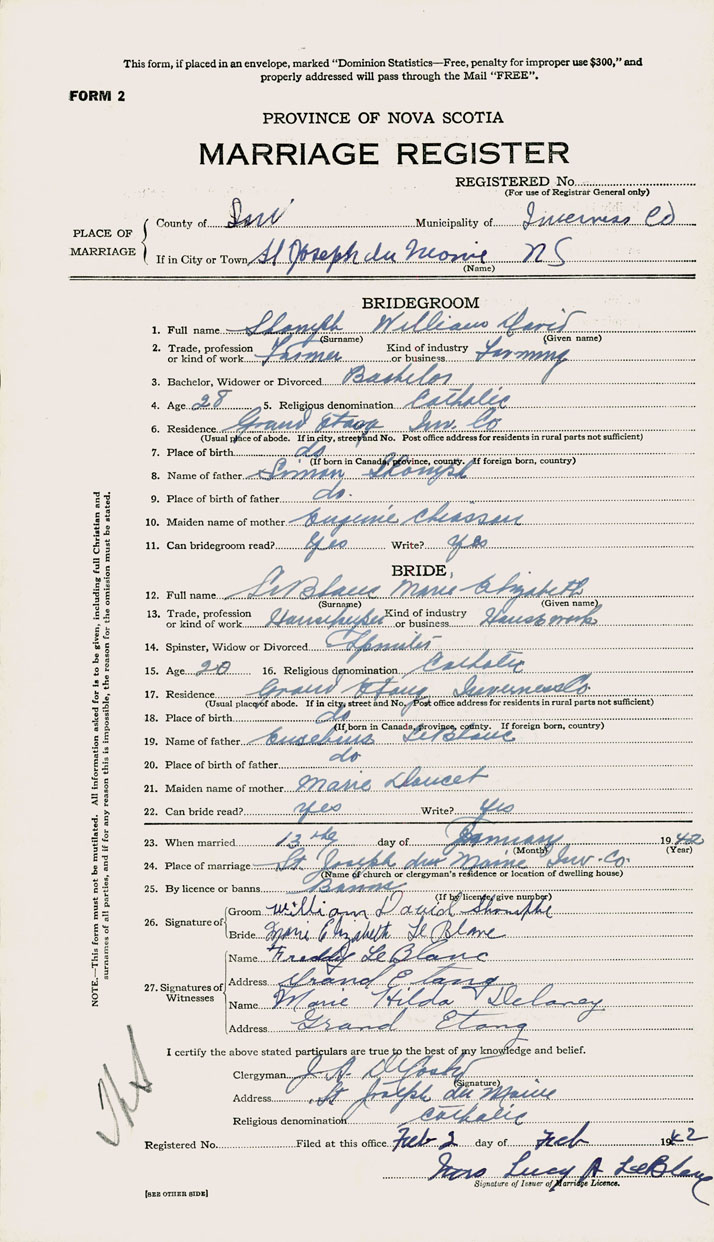 This form, if placed in an envelope, marked "Dominion Statistics—Free, penalty for improper use $300," and
properly addressed will pass through the Mail "FREE".
FORM 2
PROVINCE OF NOVA SCOTIA
MARRIAGE REGISTER
REGISTERED No.
(For use of Registrar General only)
PLACE OF MARRIAGE
County of Municipality of Inverness Co
If in City or Town St Joseph du Moine N S
(Name)
BRIDEGROOM
1. Full name William David
(Surname) (Given name)
2. Trade, profession or kind of work Farmer Kind of industry or business Farming
3. Bachelor, Widower or Divorced Bachelor
4. Age 28 5. Religious denomination Catholic
6. Residence Grand Etang Inv. Co
(Usual place of abode. If in city, street and No. Post office address for residents in rural parts not sufficient)
7. Place of birth do
(If born in Canada, province, county. If foreign born, country)
8. Name of father Simon
9. Place of birth of father do.
10. Maiden name of mother Eugenie Chiasson
11. Can bridegroom read? Yes Write? Yes
BRIDE
12. Full name LeBlanc Marie Elizabeth
(Surname) (Given name)
13. Trade, profession or kind of work Housekeeper Kind of industry or business Housework
14. Spinster, Widow or Divorced Spinster
15. Age 20 16. Religious denomination Catholic
17. Residence Grand Etang Inverness Co.
(Usual place of abode. If in city, street and No. Post office address for residents in rural parts not sufficient)
18. Place of birth do
(If born in Canada, province, county. If foreign born, country)
19. Name of father Eusebius LeBlanc
20. Place of birth of father do
21. Maiden name of mother Marie Doucet
22. Can bride read? Yes Write? Yes
23. When married 13 the day of January 1942
(Month) (Year)
24. Place of marriage St. Joseph du Moine Inv. Co.
(Name of church or clergyman's residence or location of dwelling house)
25. By licence or banns Banns
(If by license, give number)
26. Signature of
Groom William David
Bride Marie Elizabeth Le Blanc
27. Signatures of Witnesses
Name Freddy Le Blanc
Address Grand Etang
Name Marie Hilda Delaney
Address Grand Etang
I certify the above stated particulars are true to the best of my knowledge and belief.
Clergyman J. A. DeCoste
(Signature)
Address St Joseph du Moine
Religious denomination Catholic
Registered No. Filed at this office Feb 2 day of Feb 1942
Mrs Lucy A LeBlanc
Signature of Issuer of Marriage Licence.
[SEE OTHER SIDE]
NOTE.—This form must not be mutilated. All information asked for is to be given, including full Christian and
surnames of all parties, and if for any reason this is impossible, the reason for the omission must be stated.